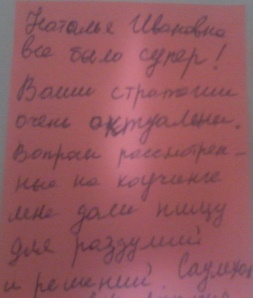 Наталья Ивановна
все было супер!
Ваши стратегии
очень актуальны.
Вопросы рассмотрен-
ные на коучинге
мне дали пищу
для раздумий
и решений.